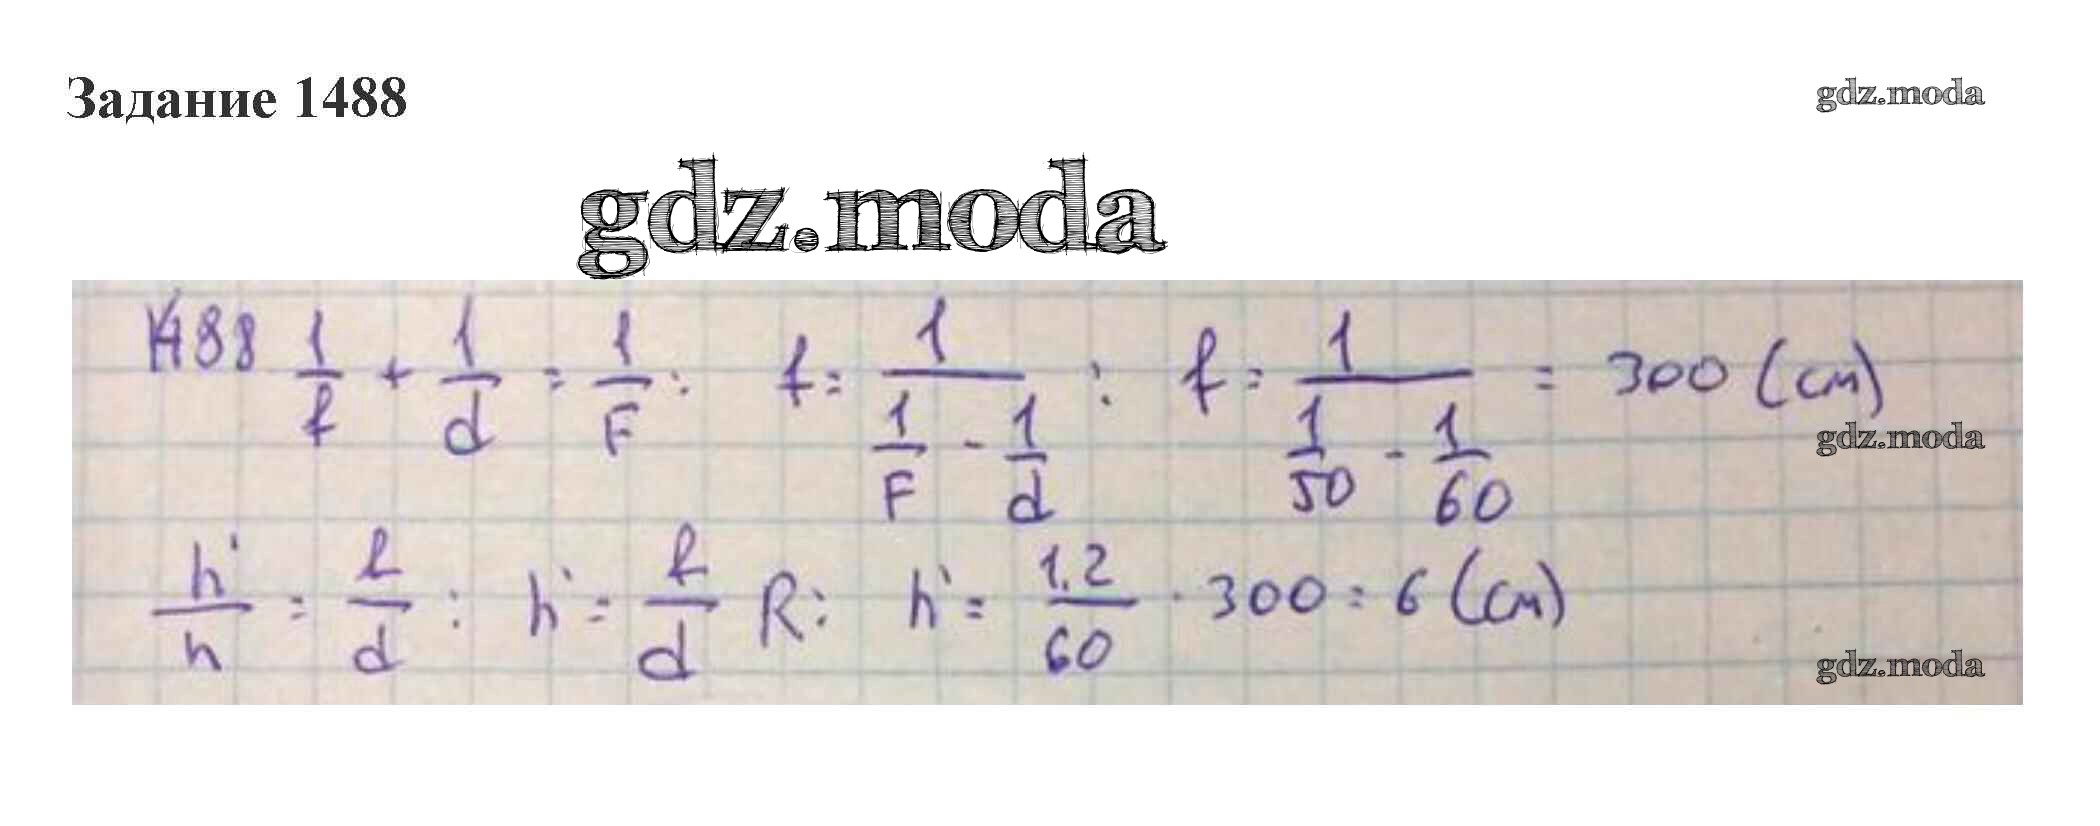 Задание 1488
gdz.moda
gdz.moda
1488 1/f + 1/d = 1/F; f = 1/(1/F - 1/d); f = 1/(1/50 - 1/60) = 300 (см)
gdz.moda
h'/h = f/d; h' = f/d h; h' = 1.2/60 · 300 = 6 (см)
gdz.moda